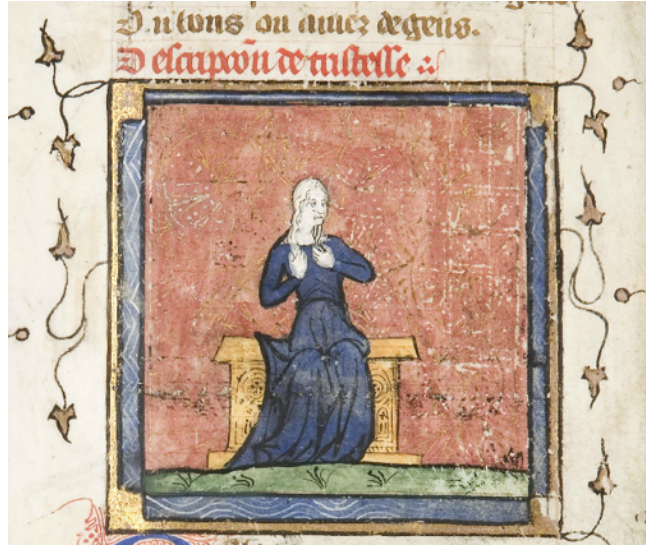 O u bons ou amez de gens.
D escripcõn de tristesse